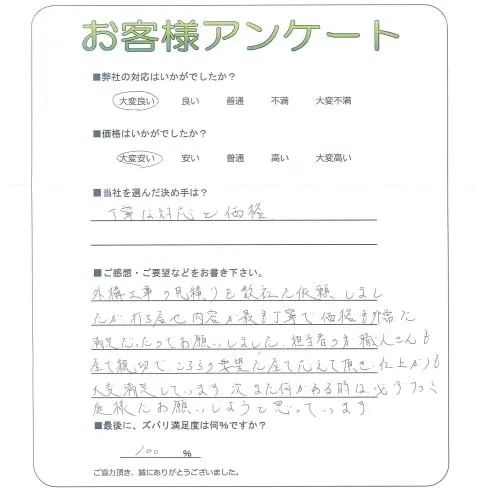 お客様アンケート
■弊社の対応はいかがでしたか？
大変良い 良い 普通 不満 大変不満
■価格はいかがでしたか？
大変安い 安い 普通 高い 大変高い
■当社を選んだ決め手は？
丁寧な対応と価格
■ご感想・ご要望などをお書き下さい。
外構工事の見積りを数社に依頼しまし
たが 内容が最も丁寧で価格も非常に
満足だったのでお願いしました。担当者の方 職人さんも
親切で 要望に 応えて頂き、仕上がりも
大変満足しています 次また何かある時は必ず
庭様にお願いしようと思っています
■最後に、ズバリ満足度は何%ですか？
100 %
ご協力頂き、誠にありがとうございました。